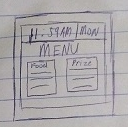 11:59AM MON
MENU
Food Price